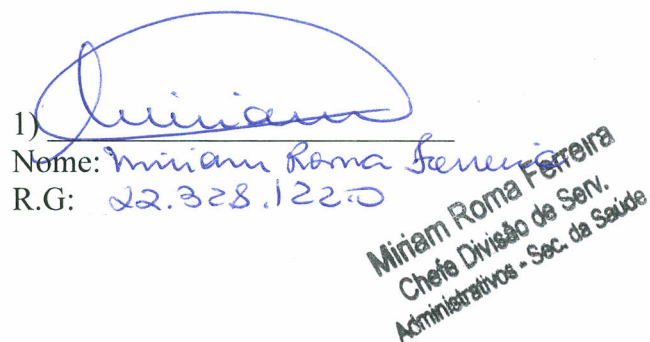 1) Miriam
Nome: Miriam Roma Ferreira
R.G: 22.328.122-0
Miriam Roma Ferreira
Chefe Divisão de Serv.
Administrativos - Sec. da Saúde